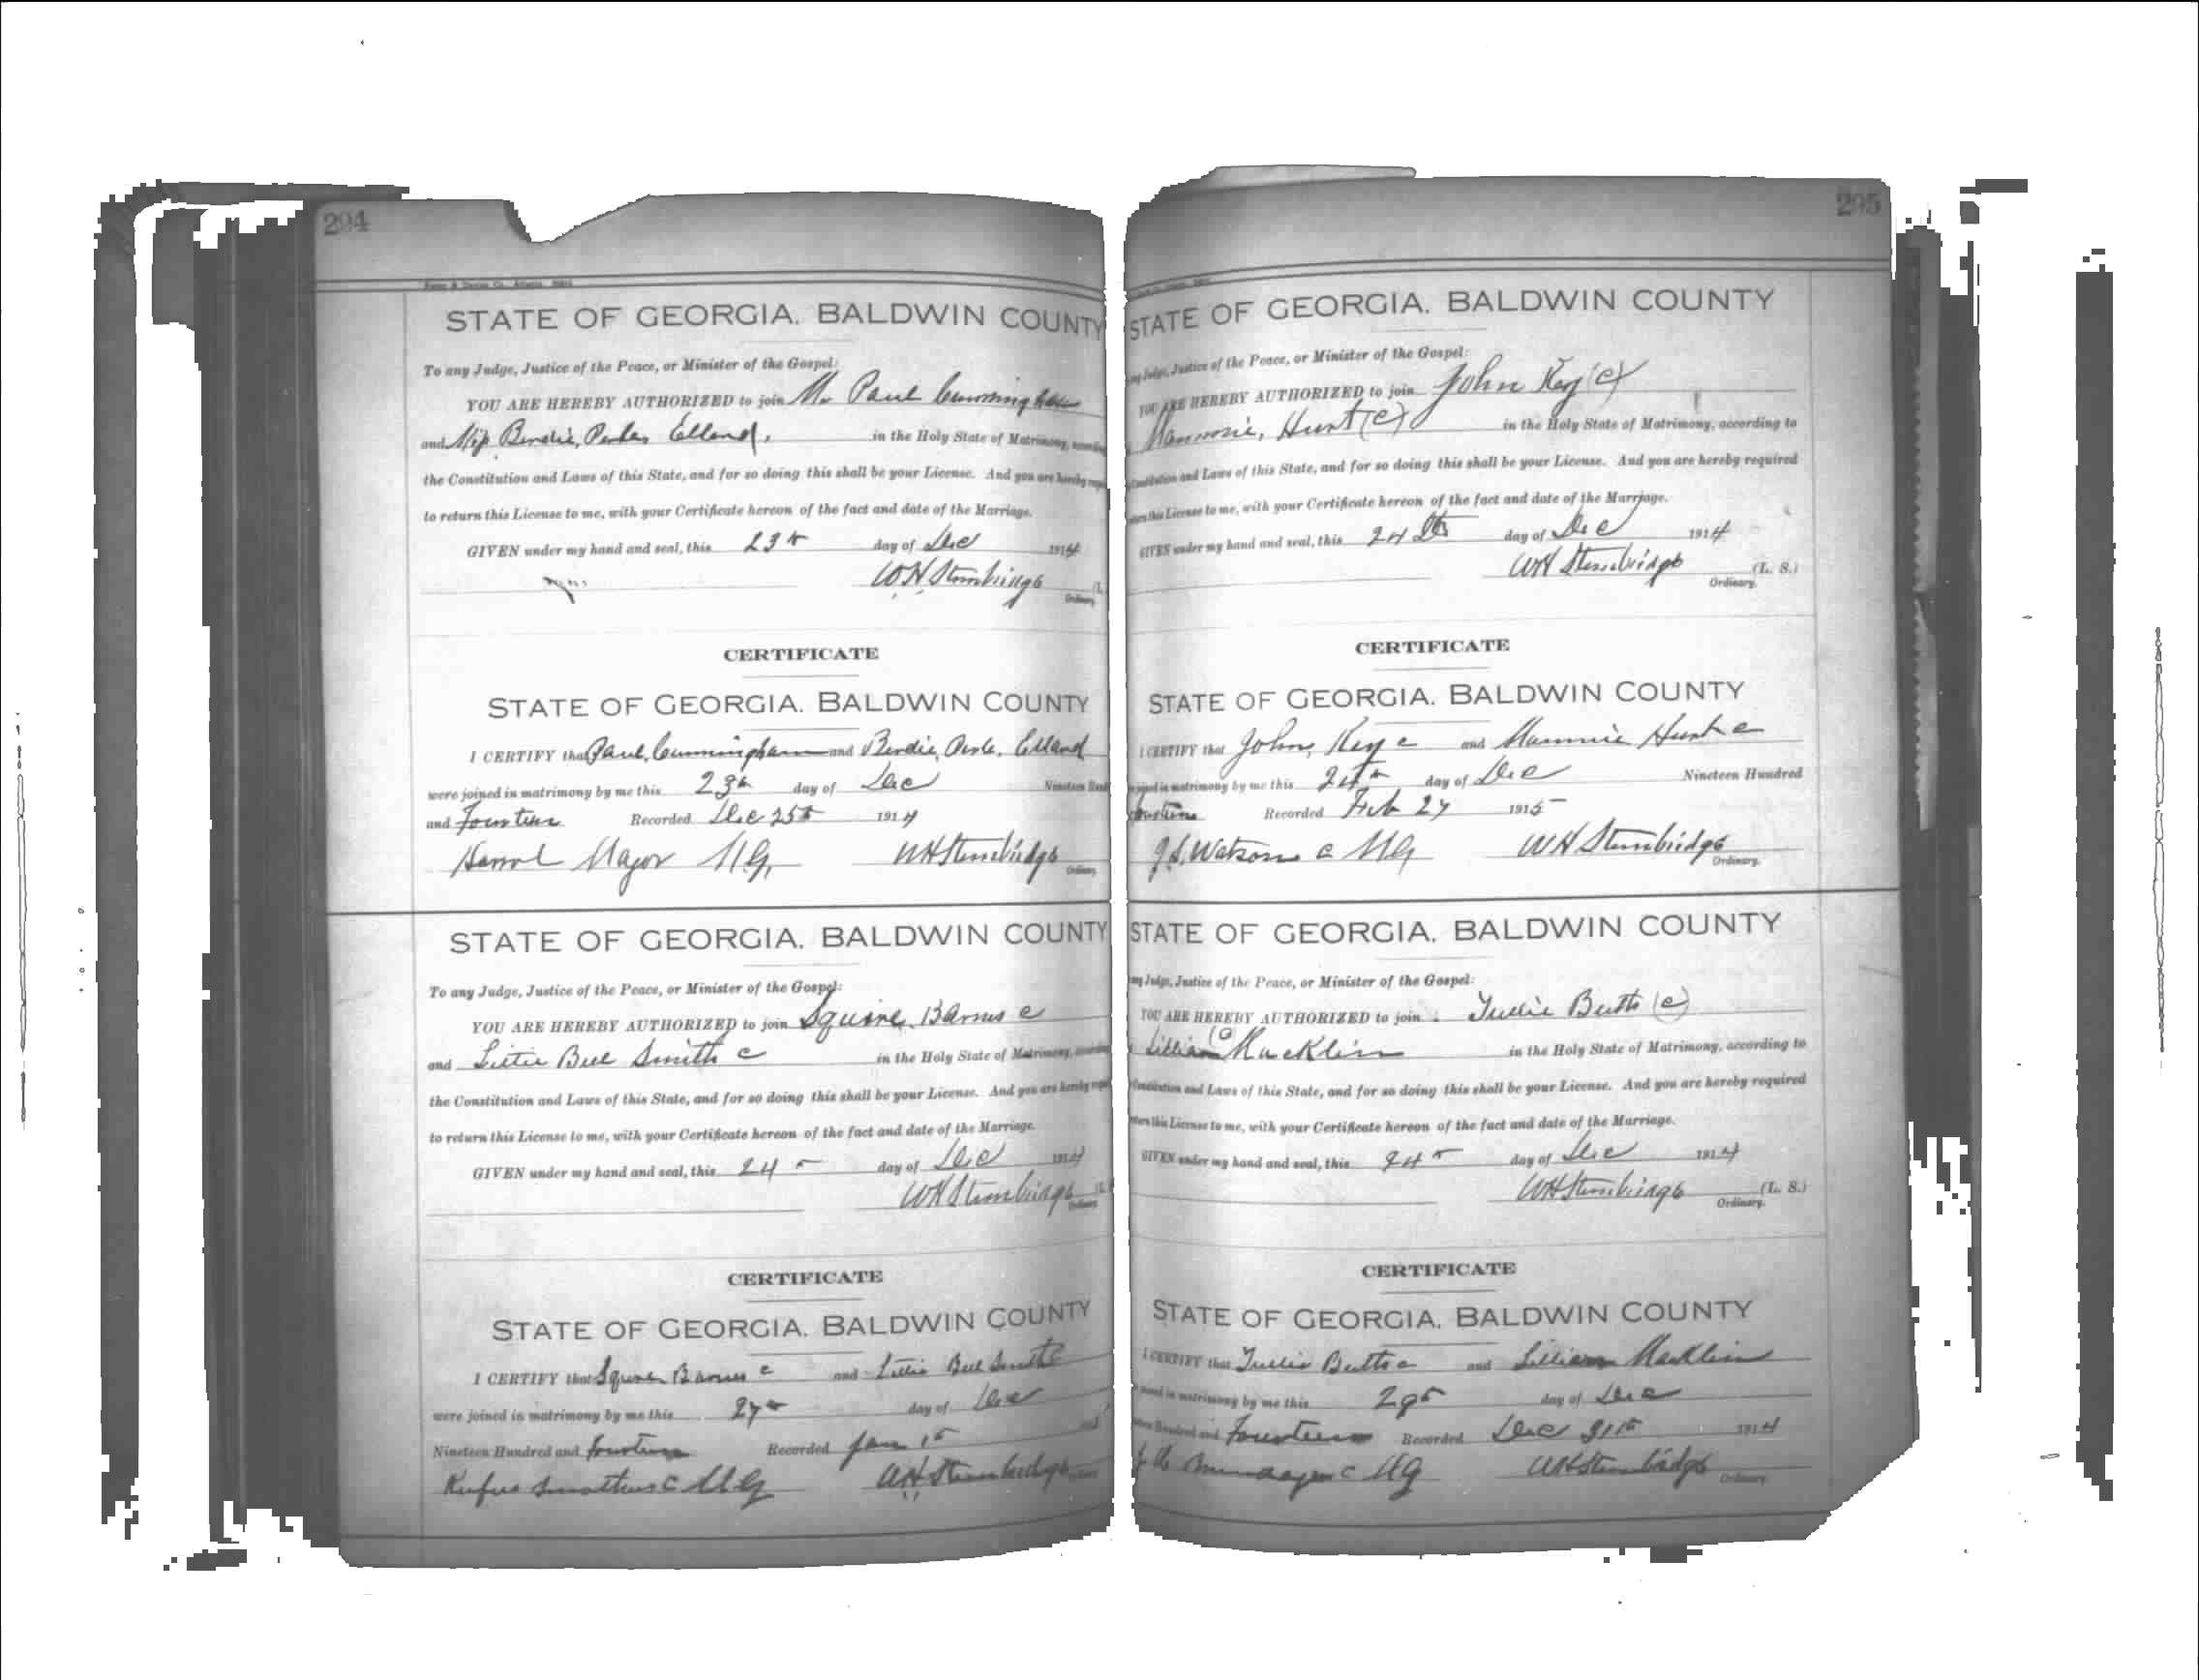 294
STATE OF GEORGIA. BALDWIN COUNTY
To any Judge, Justice of the Peace, or Minister of the Gospel:
YOU ARE HEREBY AUTHORIZED to join Mr Paul Cunningham
and Miss Birdie, Elland, in the Holy State of Matrimony,
the Constitution and Laws of this State, and for so doing this shall be your License. And you are hereby
to return this License to me, with your Certificate hereon of the fact and date of the Marriage.
GIVEN under my hand and seal, this 23 day of Dec 1914
W.H. Stembridge
Ordinary.
CERTIFICATE
STATE OF GEORGIA. BALDWIN COUNTY
I CERTIFY that Paul, Cunningham and Birdie, Elland
were joined in matrimony by me this 23 day of Dec Nineteen
and Fourteen Recorded Dec 25 1914
Major M.G. WH Stembridge
Ordinary.
STATE OF GEORGIA. BALDWIN COUNTY
To any Judge, Justice of the Peace, or Minister of the Gospel:
YOU ARE HEREBY AUTHORIZED to join Squire Barnes c
and Smith c in the Holy State of Matrimony,
the Constitution and Laws of this State, and for so doing this shall be your License. And you are hereby
to return this License to me, with your Certificate hereon of the fact and date of the Marriage.
GIVEN under my hand and seal, this 24 day of Dec 1914
WH Stembridge
Ordinary
CERTIFICATE
STATE OF GEORGIA. BALDWIN COUNTY
I CERTIFY that Squire Barnes c and Smith
were joined in matrimony by me this 27 day of Dec
Nineteen Hundred and fourteen Recorded Jan 1
Rufus c M G WH Stembridge
295
STATE OF GEORGIA. BALDWIN COUNTY
Judge, Justice of the Peace, or Minister of the Gospel:
YOU ARE HEREBY AUTHORIZED to join John Key (c)
Mammie, Hunt (c) in the Holy State of Matrimony, according to
Constitution and Laws of this State, and for so doing this shall be your License. And you are hereby required
this License to me, with your Certificate hereon of the fact and date of the Marriage.
GIVEN under my hand and seal, this 24 day of Dec 1914
WH Stembridge (L. S.)
Ordinary.
CERTIFICATE
STATE OF GEORGIA. BALDWIN COUNTY
I CERTIFY that John, Key c and Mammie Hunt c
in matrimony by me this 24 day of Dec Nineteen Hundred
fourteen Recorded Feb 27 1915
J.S. Watson c MG WH Stembridge
Ordinary.
STATE OF GEORGIA. BALDWIN COUNTY
Judge, Justice of the Peace, or Minister of the Gospel:
YOU ARE HEREBY AUTHORIZED to join Butts (c)
Lillian (c) Macklin in the Holy State of Matrimony, according to
Constitution and Laws of this State, and for so doing this shall be your License. And you are hereby required
this License to me, with your Certificate hereon of the fact and date of the Marriage.
GIVEN under my hand and seal, this 24 day of Dec 1914
WH Stembridge (L. S.)
Ordinary.
CERTIFICATE
STATE OF GEORGIA. BALDWIN COUNTY
I CERTIFY that Butts c and Lillian Macklin
in matrimony by me this 29 day of Dec
Hundred and Fourteen Recorded Dec 31 1914
c MG WH Stembridge
Ordinary